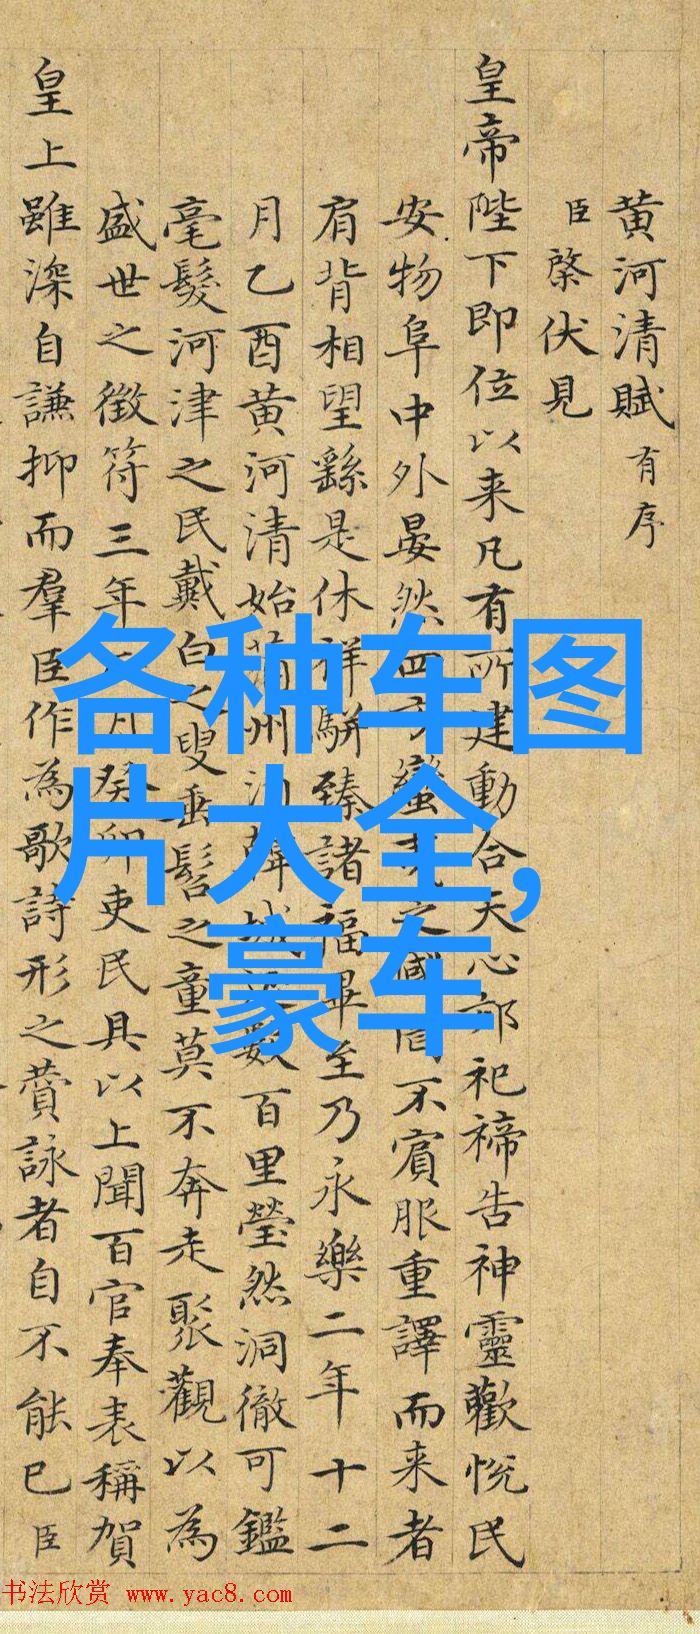 黄河清賦有序
臣棨伏見
皇帝陛下即位以来凡有所建動合天心郊祀禘告神靈歡悅民
安物阜中外晏然四方蠻夷之國罔不賓服重譯而来者
肩背相望繇是休祥駢臻諸福畢至乃永樂二年十二
月乙酉黄河清始蒲州河津韓城數百里瑩然洞徹可鑑
毫髮河津之民戴白之叟垂髫之童莫不奔走聚觀以為
盛世之徵符三年癸卯吏民具以上聞百官奉表稱賀
皇上雖深自謙抑而羣臣作為歌詩形之賛詠者自不能已臣
各种车图
片大全,
豪车
书法欣赏 www.yac8.com